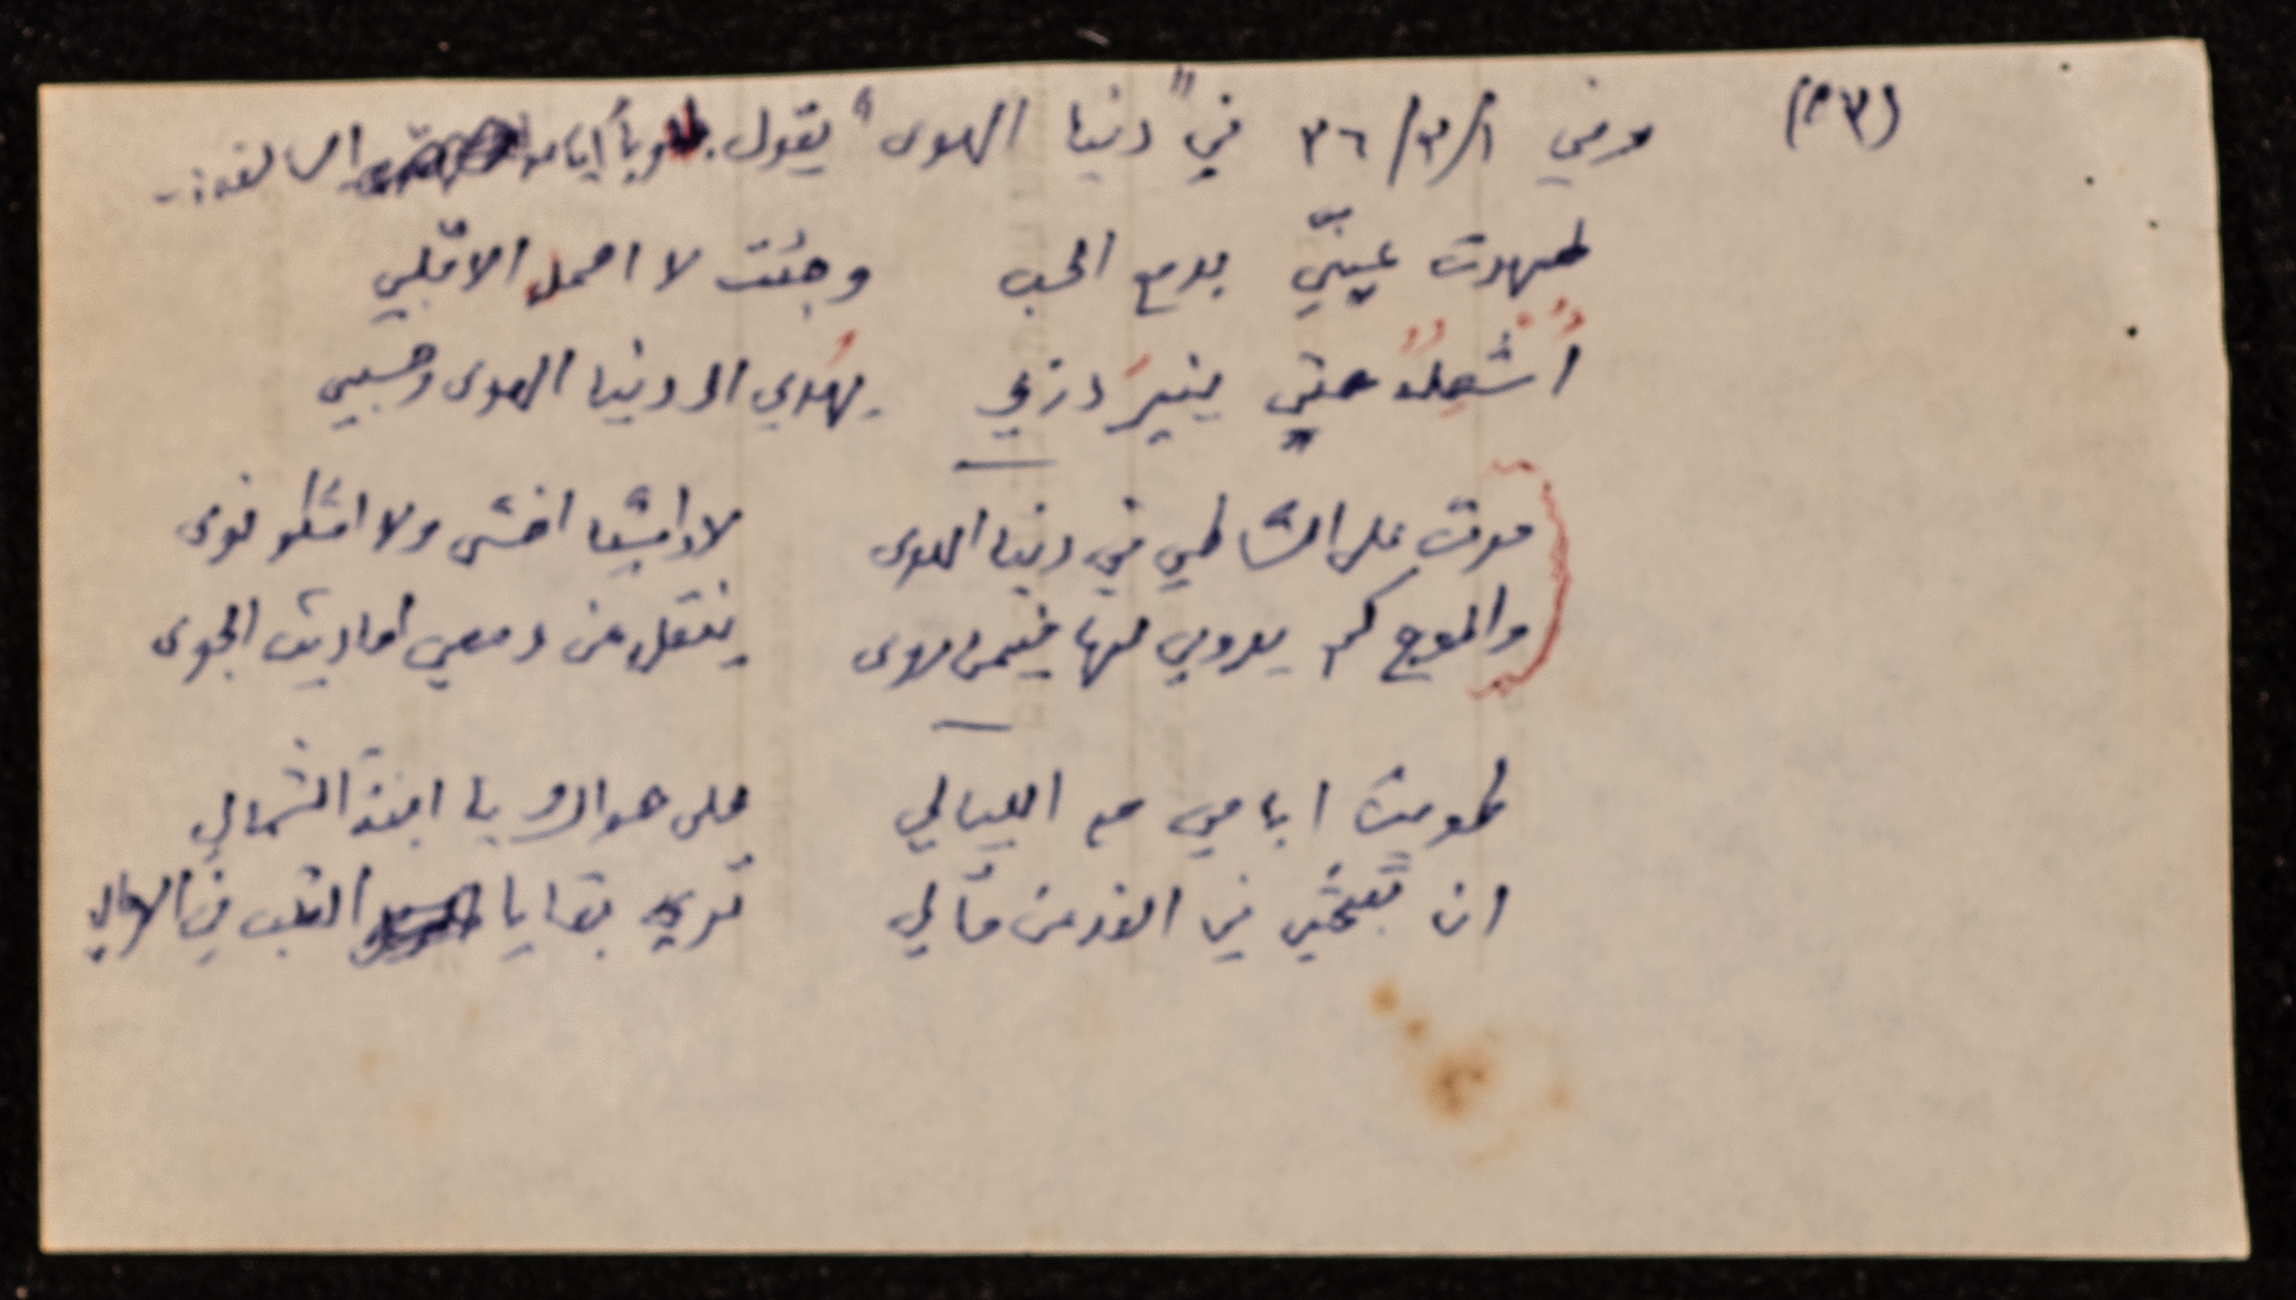 (٢٣) وفي ١/٣/٣٦ في "دنيا الهوى" يقول طاوياً أيامه السالفة :-
طهرت عينيّ بدمع الحب وجئت لا احمل الا قلبي
أُشْعِلُهُ حتى ينيرَ دربي يهْدي الى دنيا الهوى وحسبي
مرت على الشاطي في دنيا الهوى لا واشيا اخشى ولا اشكو نوى
والموج كم يروي لها فيمن روى ينقل عن دمعي احاديث الجوى
طويت ايامي مع الليالي على هواك يا ابنة الشمال
ان تبحثي في الغد عن مآلي تري بقايا القلب في الرمال